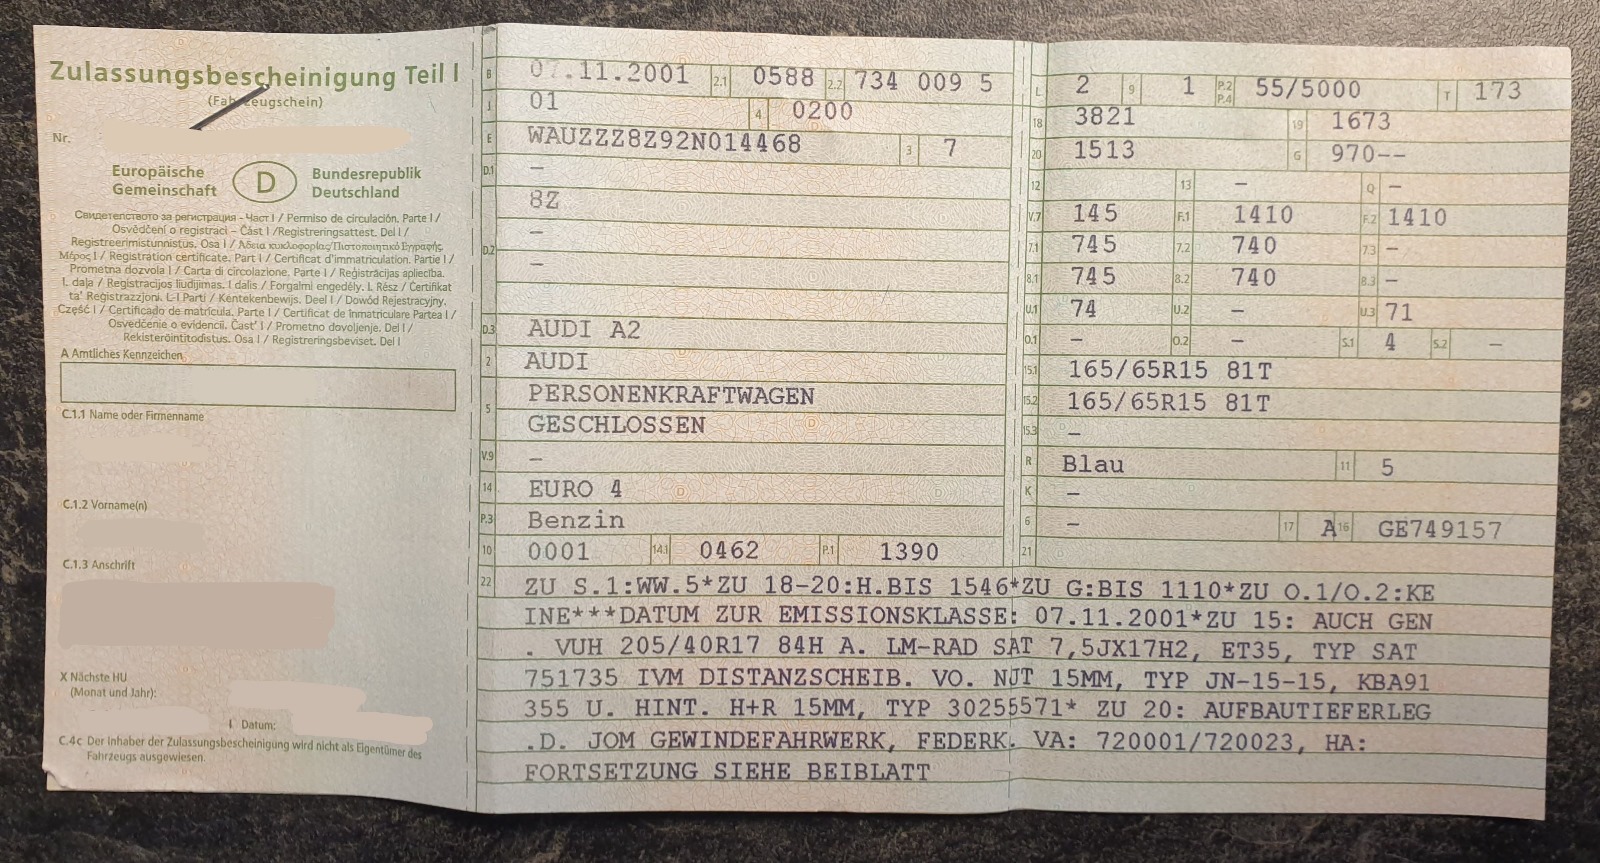 Zulassungsbescheinigung Teil I
(Fahrzeugschein)
Nr.
Europäische
Gemeinschaft
D
Bundesrepublik
Deutschland
Свидетелството за регистрация - Част I / Permiso de circulación. Parte I /
Osvědčení o registraci - Část I / Registreringsattest. Del I /
Registreerimistunnistus. Osa I / Άδεια κυκλοφορίας/Πιστοποιητικό Εγγραφής.
Μέρος I / Registration certificate. Part I / Certificat d'immatriculation. Partie I /
Prometna dozvola I / Carta di circolazione. Parte I / Reģistrācijas apliecība.
I. daļa / Registracijos liudijimas. I dalis / Forgalmi engedély. I. Rész / Ċertifikat
ta' Reġistrazzjoni. L-I Parti / Kentekenbewijs. Deel I / Dowód Rejestracyjny.
Część I / Certificado de matrícula. Parte I / Certificat de înmatriculare Partea I /
Osvedčenie o evidencii. Časť I / Prometno dovoljenje. Del I /
Rekisteröintitodistus. Osa I / Registreringsbeviset. Del I
A Amtliches Kennzeichen
C.1.1 Name oder Firmenname
C.1.2 Vorname(n)
C.1.3 Anschrift
X Nächste HU
(Monat und Jahr):
I Datum:
C.4c Der Inhaber der Zulassungsbescheinigung wird nicht als Eigentümer des
Fahrzeugs ausgewiesen.
B 07.11.2001 2.1 0588 2.2 734 009 5
J 01 4 0200
E WAUZZZ8Z92N014468 3 7
D.1 –
8Z
–
D.2 –
D.3 AUDI A2
2 AUDI
PERSONENKRAFTWAGEN
5 GESCHLOSSEN
V.9 –
14 EURO 4
P.3 Benzin
10 0001 14.1 0462 P.1 1390
L 2 9 1 P.2 P.4 55/5000 T 173
18 3821 19 1673
20 1513 G 970--
12 13 – Q –
V.7 145 F.1 1410 F.2 1410
7.1 745 7.2 740 7.3 –
8.1 745 8.2 740 8.3 –
U.1 74 U.2 – U.3 71
O.1 – O.2 – S.1 4 S.2 –
15.1 165/65R15 81T
15.2 165/65R15 81T
15.3 –
R Blau 11 5
K –
6 – 17 A 16 GE749157
21
22 ZU S.1:WW.5*ZU 18-20:H.BIS 1546*ZU G:BIS 1110*ZU O.1/O.2:KE
INE***DATUM ZUR EMISSIONSKLASSE: 07.11.2001*ZU 15: AUCH GEN
. VUH 205/40R17 84H A. LM-RAD SAT 7,5JX17H2, ET35, TYP SAT
751735 IVM DISTANZSCHEIB. VO. NJT 15MM, TYP JN-15-15, KBA91
355 U. HINT. H+R 15MM, TYP 30255571* ZU 20: AUFBAUTIEFERLEG
.D. JOM GEWINDEFAHRWERK, FEDERK. VA: 720001/720023, HA:
FORTSETZUNG SIEHE BEIBLATT